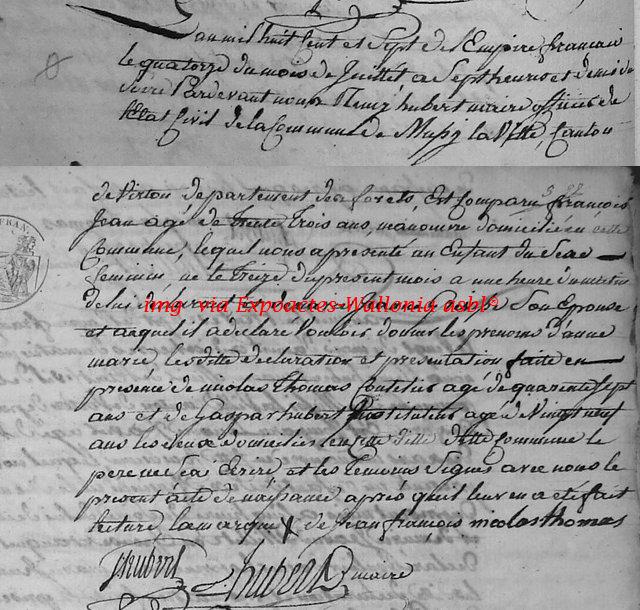 L'an mil huit cent et Sept de l'Empire français
le quatorze du mois de Juillet a Sept heures et demi de
Pardevant nous Remÿ hubert maire officier de
l'Etat Civil de la Commune de Mussÿ la Ville, Canton
de Virton departement des forets, Est Comparu françois
Jean agé de trente trois ans, manouvre domicilié en cette
Commune, lequel nous a presenté un Enfant du Sexe
feminin né le treize du present mois a une heure du matin
de lui déclarant et de Son Epouse
img via Expoactes-Wallonia asbl©
et auquel il a declaré Vouloir donner les prenoms d'anne
marie, lesdite declaration et presentation faite en
presence de nicolas Thomas agé de quarente Sept
ans et de Gaspar hubert Instituteur agé de Vingt neuf
ans les deux domicilies en cette Ville dette Commune le
pere ne Sea Ecrire et les temoins Signés avec nous le
present acte de naissance aprés quil leur en a eté fait
lecture, la marque X de Jean françois nicolas thomas
Ghubert Rhubert maire
FRAN